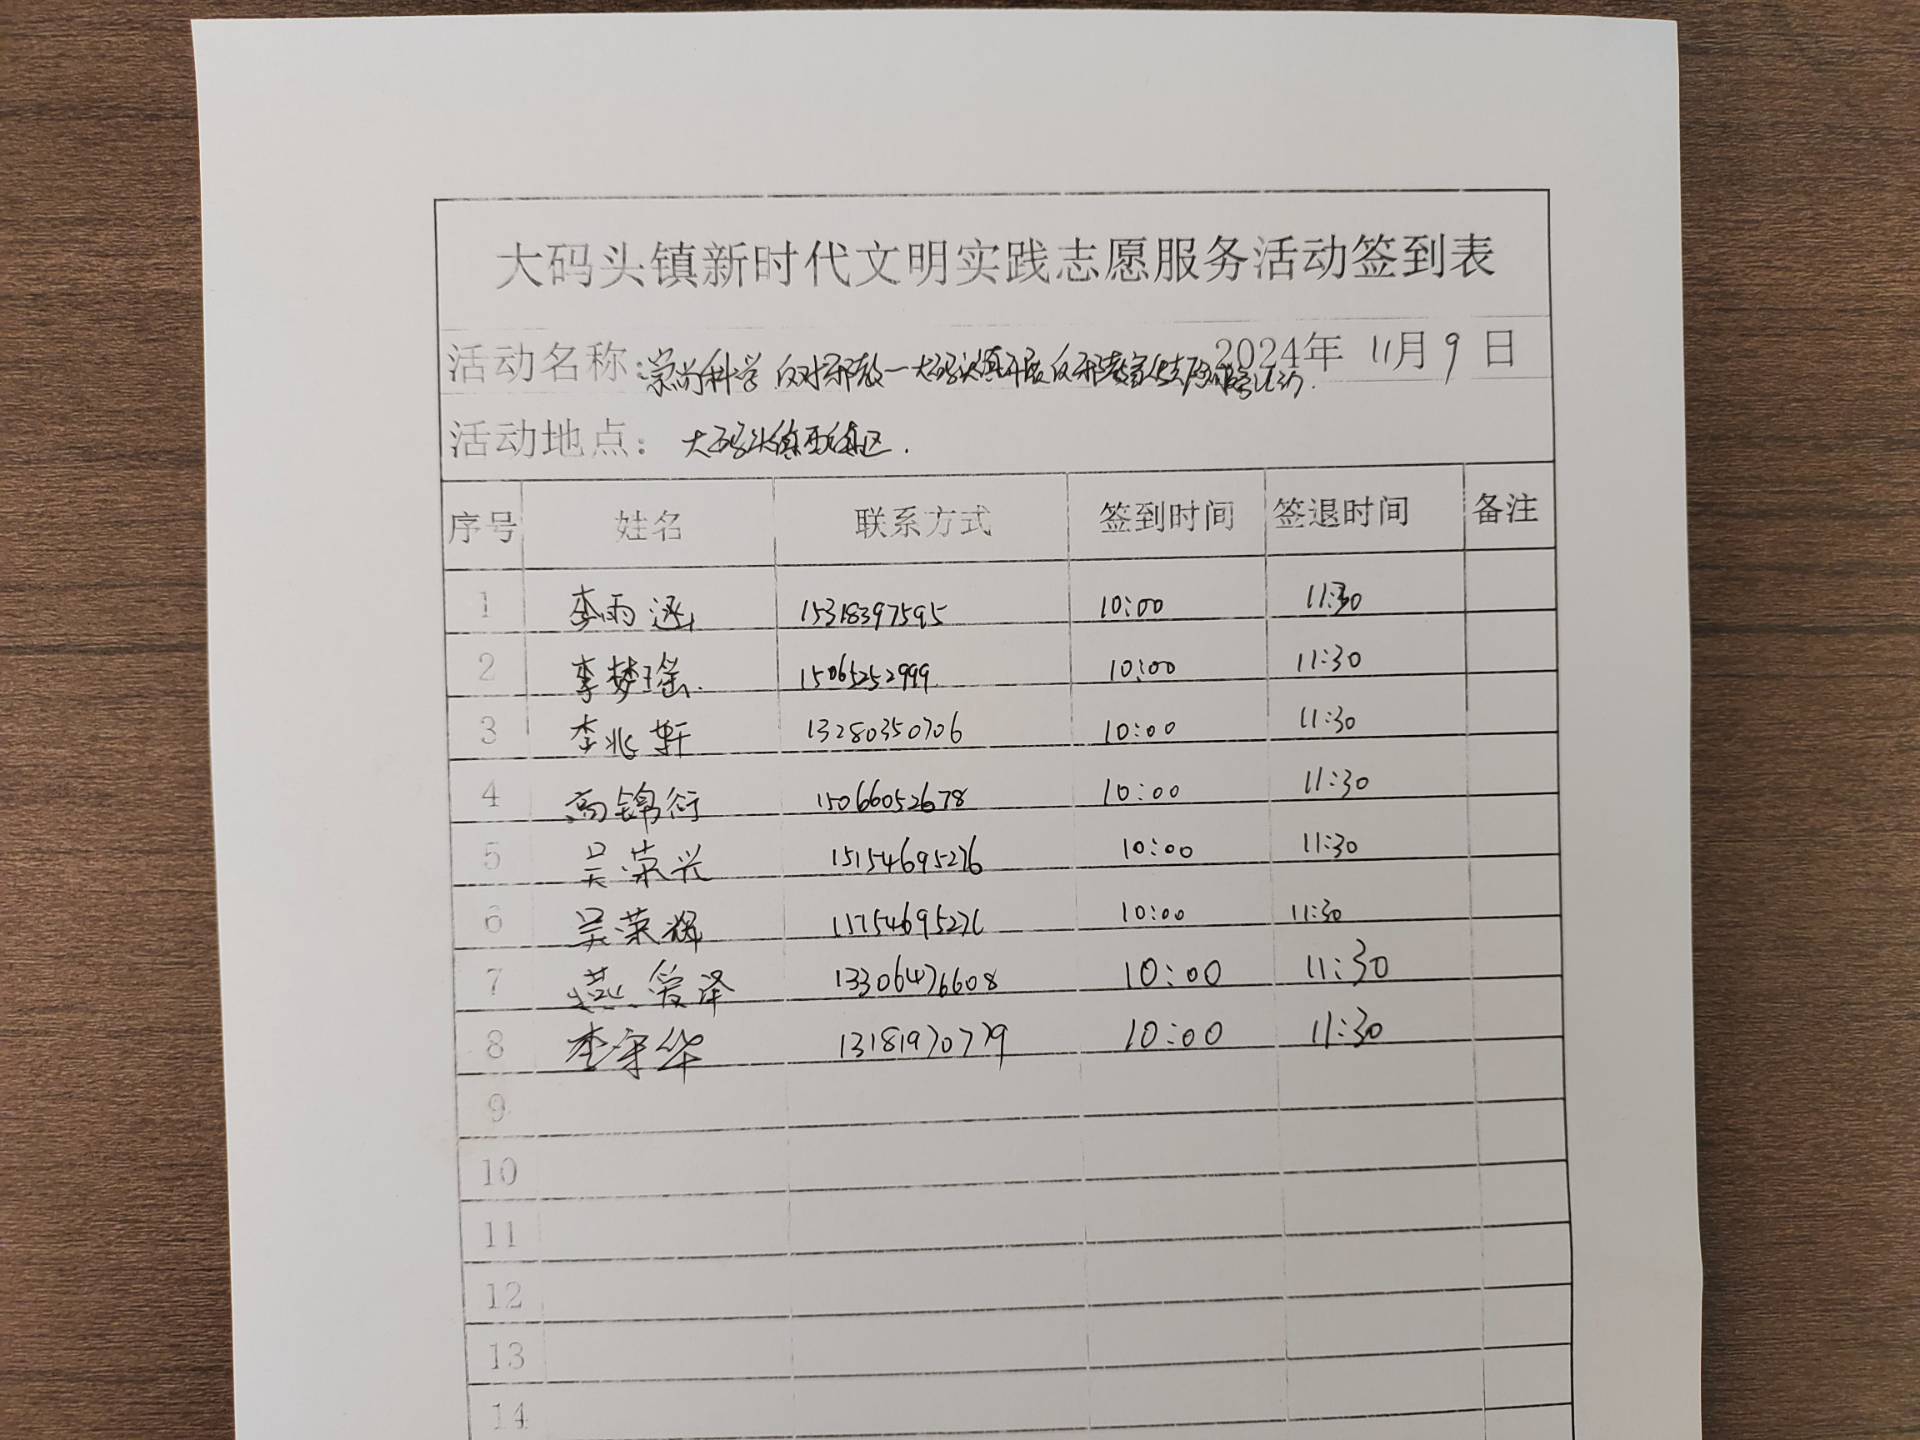 大码头镇新时代文明实践志愿服务活动签到表
活动名称：崇尚科学 反对邪教—大码头镇开展反邪教宣传志愿服务活动. 2024年 11月 9 日
活动地点： 大码头镇西社区.
序号 姓名 联系方式 签到时间 签退时间 备注
1 李雨涵 15318397595 10:00 11:30
2 李梦瑶 15065252999 10:00 11:30
3 李兆轩 13280350706 10:00 11:30
4 高锦衍 15066052678 10:00 11:30
5 吴荣兴 15154695276 10:00 11:30
6 吴荣辉 11754695276 10:00 11:30
7 燕爱泽 13306476608 10:00 11:30
8 李守华 13181970779 10:00 11:30
9
10
11
12
13
14